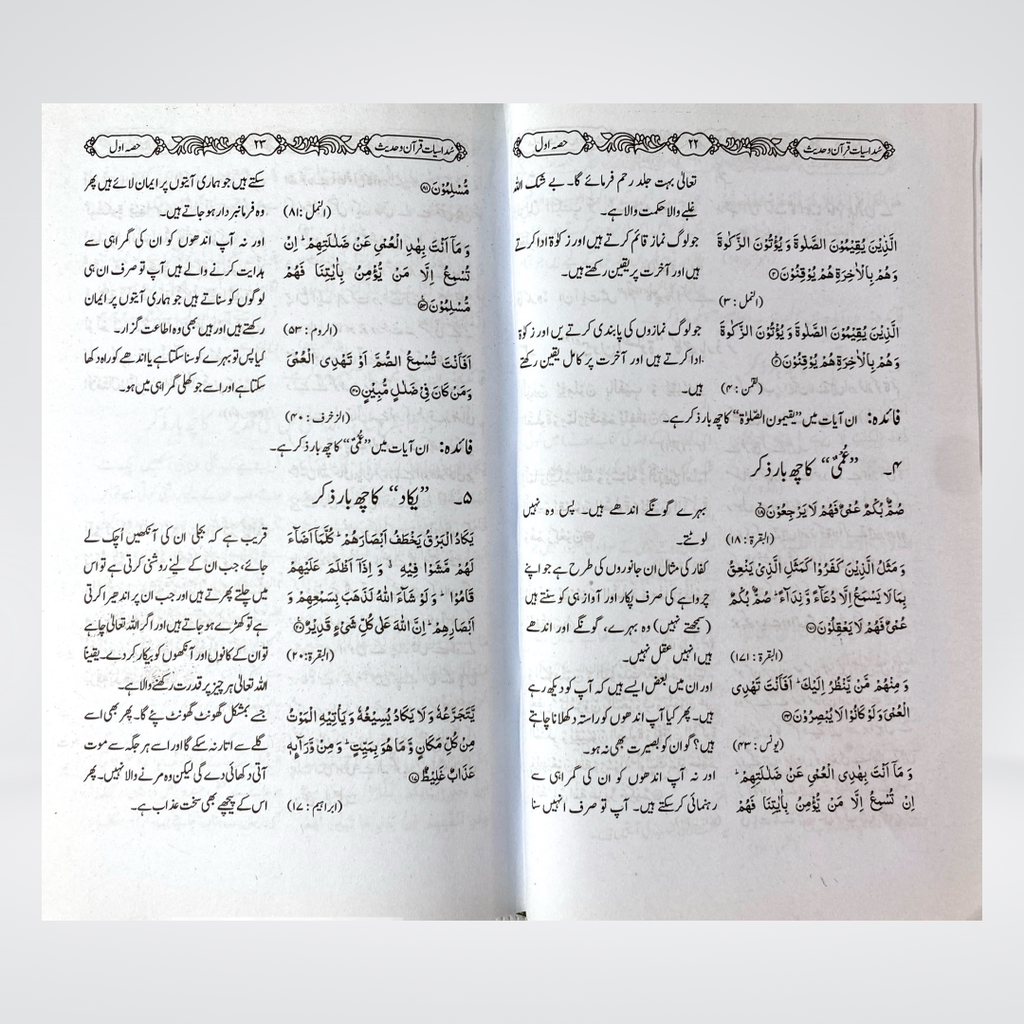 سُداسیات قرآن وحدیث ۲۲ حصہ اول
تعالیٰ بہت جلد رحم فرمائے گا۔ بے شک اللہ
غلبے والا حکمت والا ہے۔
الَّذِیْنَ یُقِیْمُوْنَ الصَّلٰوةَ وَ یُؤْتُوْنَ الزَّکٰوةَ
وَهُمْ بِالْاٰخِرَةِ هُمْ یُوْقِنُوْنَ۝۳
(النمل : ۳)
جو لوگ نماز قائم کرتے ہیں اور زکوٰۃ ادا کرتے
ہیں اور آخرت پر یقین رکھتے ہیں۔
الَّذِیْنَ یُقِیْمُوْنَ الصَّلٰوةَ وَ یُؤْتُوْنَ الزَّکٰوةَ
وَهُمْ بِالْاٰخِرَةِ هُمْ یُوْقِنُوْنَ۝۴
(لقمن : ۴)
جو لوگ نمازوں کی پابندی کرتے یں اور زکوٰۃ
ادا کرتے ہیں اور آخرت پر کامل یقین رکھتے
ہیں۔
فائدہ: ان آیات میں ”یقیمون الصّلوٰۃ“ کا چھ بار ذکر ہے۔
۴۔ ”عُمْیٌ“ کا چھ بار ذکر
صُمٌّۢ بُکْمٌ عُمْیٌ فَهُمْ لَا یَرْجِعُوْنَ۝۱۸
(البقرة : ۱۸)
بہرے گونگے اندھے ہیں۔ پس وہ نہیں
لوٹتے۔
وَ مَثَلُ الَّذِیْنَ کَفَرُوْا کَمَثَلِ الَّذِیْ یَنْعِقُ
بِمَا لَا یَسْمَعُ اِلَّا دُعَآءً وَّ نِدَآءً ؕ صُمٌّۢ بُکْمٌ
عُمْیٌ فَهُمْ لَا یَعْقِلُوْنَ۝۱۷۱
(البقرة : ۱۷۱)
کفار کی مثال ان جانوروں کی طرح ہے جو اپنے
چرواہے کی صرف پکار اور آواز ہی کو سنتے ہیں
(سمجھتے نہیں) وہ بہرے، گونگے اور اندھے
ہیں انہیں عقل نہیں۔
وَ مِنْهُمْ مَّنْ یَّنْظُرُ اِلَیْكَ ؕ اَفَاَنْتَ تَهْدِی
الْعُمْیَ وَلَوْ کَانُوْا لَا یُبْصِرُوْنَ۝۴۳
(یونس : ۴۳)
اور ان میں بعض ایسے ہیں کہ آپ کو دیکھ رہے
ہیں۔ پھر کیا آپ اندھوں کو راستہ دکھلانا چاہتے
ہیں؟ گو ان کو بصیرت بھی نہ ہو۔
وَ مَاۤ اَنْتَ بِهٰدِی الْعُمْیِ عَنْ ضَلٰلَتِهِمْ ؕ
اِنْ تُسْمِعُ اِلَّا مَنْ یُّؤْمِنُ بِاٰیٰتِنَا فَهُمْ
اور نہ آپ اندھوں کو ان کی گمراہی سے
رہنمائی کر سکتے ہیں۔ آپ تو صرف انہیں سنا
سُداسیات قرآن وحدیث ۲۳ حصہ اول
مُّسْلِمُوْنَ۝۸۱
(النمل :۸۱)
سکتے ہیں جو ہماری آیتوں پر ایمان لائے ہیں پھر
وہ فرمانبردار ہو جاتے ہیں۔
وَ مَاۤ اَنْتَ بِهٰدِ الْعُمْیِ عَنْ ضَلٰلَتِهِمْ ؕ اِنْ
تُسْمِعُ اِلَّا مَنْ یُّؤْمِنُ بِاٰیٰتِنَا فَهُمْ
مُّسْلِمُوْنَ۝۵۳
(الروم : ۵۳)
اور نہ آپ اندھوں کو ان کی گمراہی سے
ہدایت کرنے والے ہیں آپ تو صرف ان ہی
لوگوں کو سناتے ہیں جو ہماری آیتوں پر ایمان
رکھتے ہیں اور ہیں بھی وہ اطاعت گزار۔
اَفَاَنْتَ تُسْمِعُ الصُّمَّ اَوْ تَهْدِی الْعُمْیَ
وَ مَنْ کَانَ فِیْ ضَلٰلٍ مُّبِیْنٍ۝۴۰
(الزخرف : ۴۰)
کیا پس تو بہرے کو سنا سکتا ہے یا اندھے کو راہ دکھا
سکتا ہے اور اسے جو کھلی گمراہی میں ہو۔
فائدہ: ان آیات میں ”عُمْیٌ“ کا چھ بار ذکر ہے۔
۵۔ ”یکاد“ کا چھ بار ذکر
یَکَادُ الْبَرْقُ یَخْطَفُ اَبْصَارَهُمْ ؕ کُلَّمَاۤ اَضَآءَ
لَهُمْ مَّشَوْا فِیْهِ ۙ وَ اِذَاۤ اَظْلَمَ عَلَیْهِمْ
قَامُوْا ؕ وَ لَوْ شَآءَ اللّٰهُ لَذَهَبَ بِسَمْعِهِمْ وَ
اَبْصَارِهِمْ ؕ اِنَّ اللّٰهَ عَلٰی کُلِّ شَیْءٍ قَدِیْرٌ۝۲۰
(البقرة :۲۰)
قریب ہے کہ بجلی ان کی آنکھیں اُچک لے
جائے، جب ان کے لیئے روشنی کرتی ہے تو اس
میں چلتے پھرتے ہیں اور جب ان پر اندھیرا کرتی
ہے تو کھڑے ہو جاتے ہیں اور اگر اللہ تعالیٰ چاہے
تو ان کے کانوں اور آنکھوں کو بیکار کر دے۔ یقیناً
اللہ تعالیٰ ہر چیز پر قدرت رکھنے والا ہے۔
یَّتَجَرَّعُهٗ وَ لَا یَکَادُ یُسِیْغُهٗ وَ یَاْتِیْهِ الْمَوْتُ
مِنْ کُلِّ مَکَانٍ وَّ مَا هُوَ بِمَیِّتٍ ؕ وَ مِنْ وَّرَآىِٕهٖ
عَذَابٌ غَلِیْظٌ۝۱۷
(ابراہیم : ۱۷)
جسے بمشکل گھونٹ گھونٹ پئے گا۔ پھر بھی اسے
گلے سے اتار نہ سکے گا اور اسے ہر جگہ سے موت
آتی دکھائی دے گی لیکن وہ مرنے والا نہیں۔ پھر
اس کے پیچھے بھی سخت عذاب ہے۔